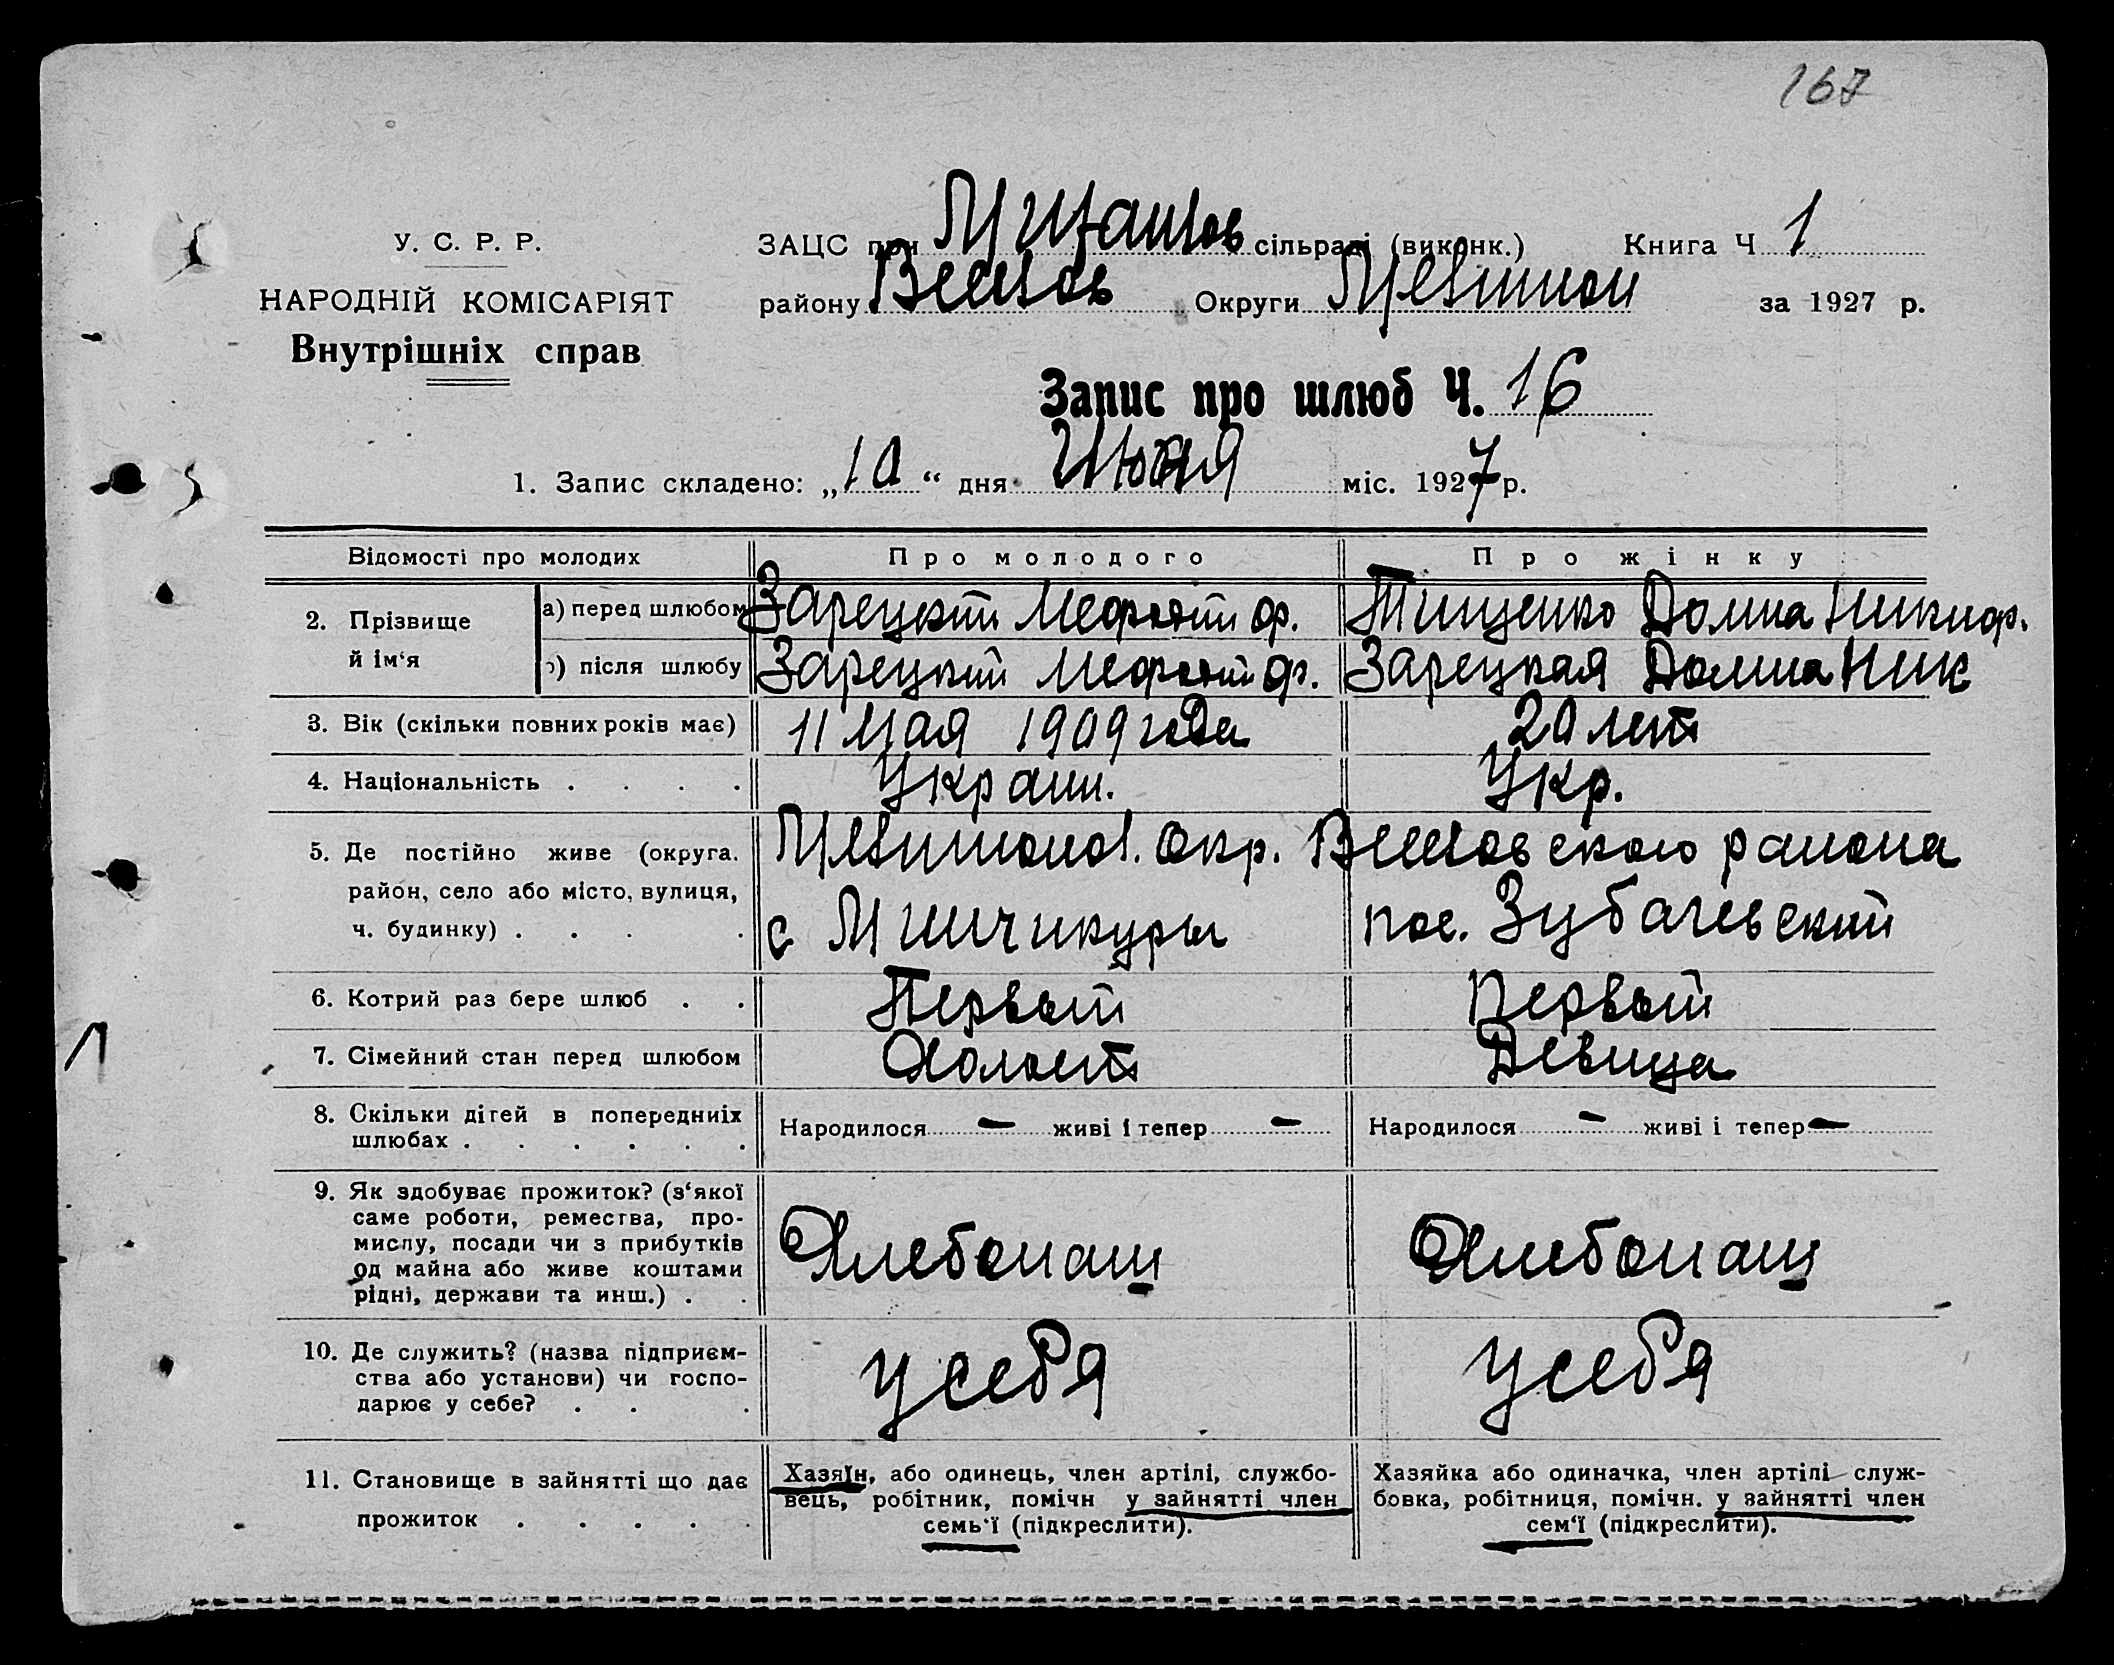 167
У. С. Р. Р.
НАРОДНІЙ КОМІСАРІЯТ
Внутрішніх справ
ЗАЦС при сільраді (виконк.) Книга Ч 1
району Округи за 1927 р.
Запис про шлюб Ч. 16
1. Запис складено: „10“ дня Июня міс. 1927 р.
Відомості про молодих Про молодого Про жінку
2. Прізвище й ім‘я
а) перед шлюбом Зарецкий Мефотий Ф. Тищенко Домна Никиф.
б) після шлюбу Зарецкий Мефотий Ф. Зарецкая Домна Ник
3. Вік (скільки повних років має) 11 Мая 1909 года 20 лет
4. Національність . . . . Украин. Укр.
5. Де постійно живе (округа, район, село або місто, вулиця, ч. будинку) . . . .
окр. района
с пос. Зубачевский
6. Котрий раз бере шлюб . . Первый Первый
7. Сімейний стан перед шлюбом Холост Девица
8. Скільки дітей в попередниіх шлюбах . . . . . .
Народилося — живі і тепер — Народилося — живі і тепер —
9. Як здобуває прожиток? (з‘якої
саме роботи, ремества, про-
мислу, посади чи з прибутків
од майна або живе коштами
рідні, держави та инш.) . .
Хлебопаш Хлебопаш
10. Де служить? (назва підприєм-
ства або установи) чи госпо-
дарює у себе? . . .
у себя у себя
11. Становище в зайнятті що дає
прожиток . . . . .
Хазяїн, або одинець, член артілі, службо-
вець, робітник, помічн у зайнятті член
семь‘ї (підкреслити).
Хазяйка або одиначка, член артілі служ-
бовка, робітниця, помічн. у зайнятті член
сем‘ї (підкреслити).